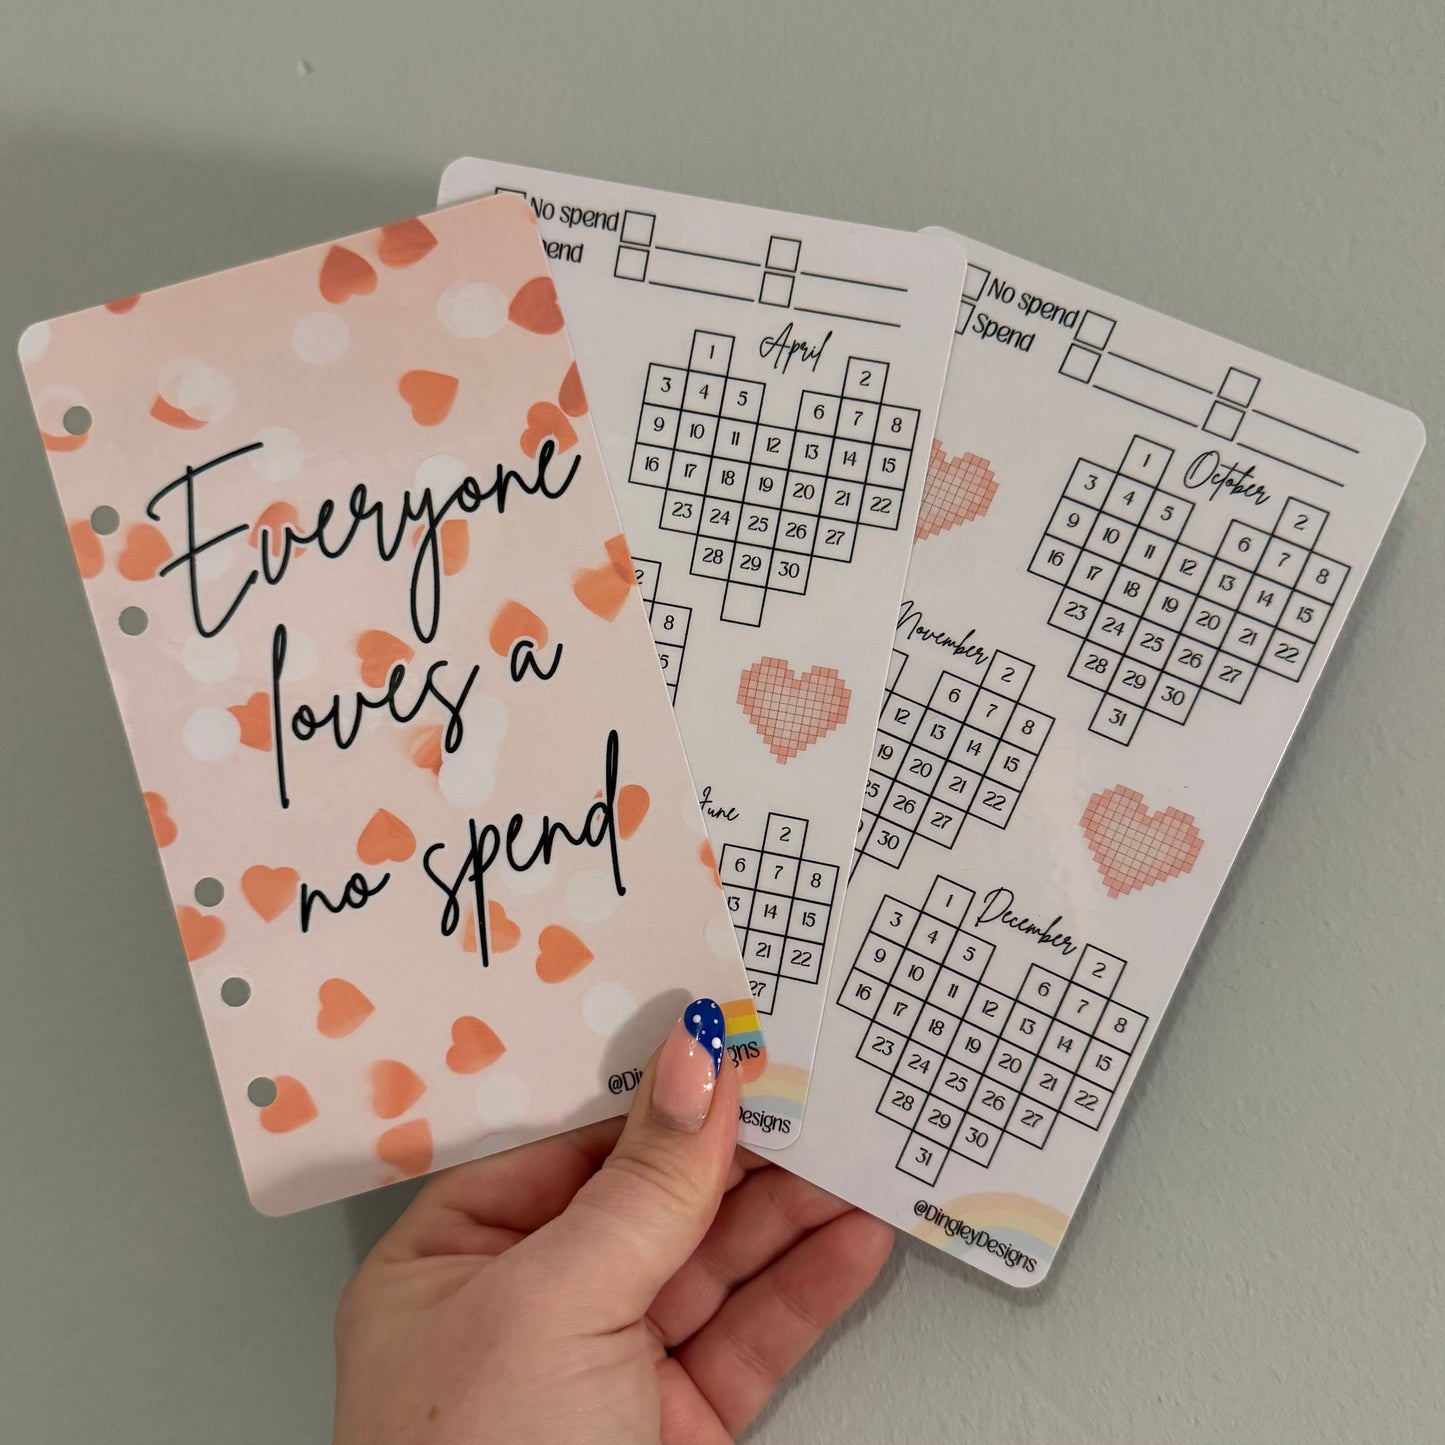 Everyone
loves a
no spend
No spend
April
1 2
3 4 5 6 7 8
9 10 11 12 13 14 15
16 17 18 19 20 21 22
23 24 25 26 27
28 29 30
8
June
2
6 7 8
13 14 15
21 22
27
No spend
Spend
October
1 2
3 4 5 6 7 8
9 10 11 12 13 14 15
16 17 18 19 20 21 22
23 24 25 26 27
28 29 30
31
November
2
6 7 8
12 13 14 15
19 20 21 22
25 26 27
30
December
1 2
3 4 5 6 7 8
9 10 11 12 13 14 15
16 17 18 19 20 21 22
23 24 25 26 27
28 29 30
31
@DingleyDesigns